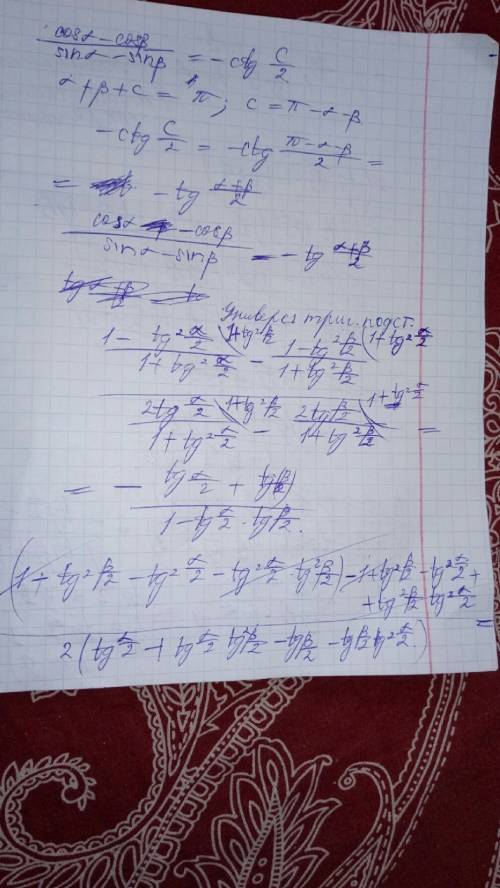 cosα - cosβ / sinα - sinβ = - ctg C/2
α + β + c = π ; c = π - α - β
- ctg C/2 = - ctg (π - α - β)/2 =
= - tg (α+β)/2
cosα - cosβ / sinα - sinβ = - tg (α+β)/2
Универс триг. подст.
1 - tg² α/2 / 1 + tg² α/2 \ 1 + tg² β/2 - 1 - tg² β/2 / 1 + tg² β/2 \ 1 + tg² α/2
2tg α/2 / 1 + tg² α/2 \ 1 + tg² β/2 - 2tg β/2 / 1 + tg² β/2 \ 1 + tg² α/2 =
= - tg α/2 + tg β/2 / 1 - tg α/2 · tg β/2 .
(1 + tg² β/2 - tg² α/2 - tg² α/2 · tg² β/2) - 1 + tg² β/2 - tg² α/2 +
+ tg² β/2 tg² α/2 =
2 (tg α/2 + tg α/2 tg² β/2 - tg β/2 - tg β/2 tg² α/2 .)